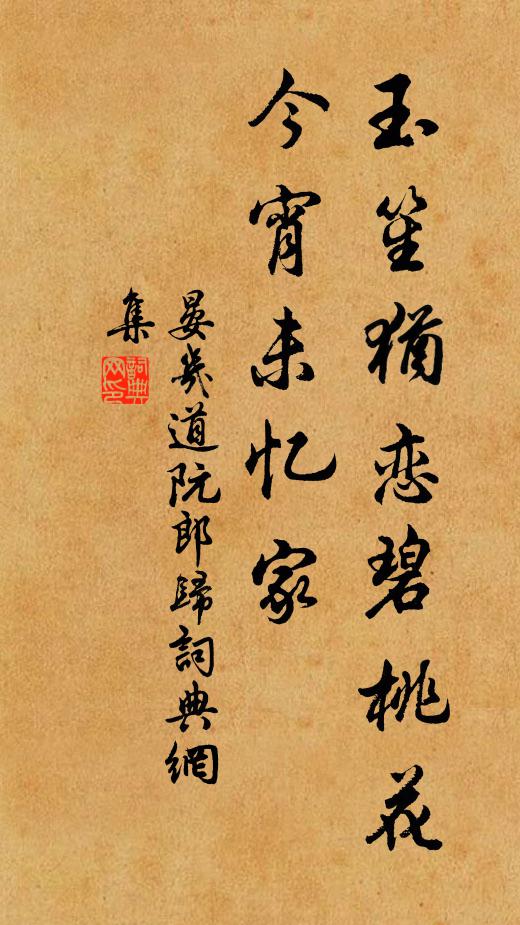 玉笙犹恋碧桃花
今宵未忆家
晏幾道阮郎歸詞典網
集
詞典
网印